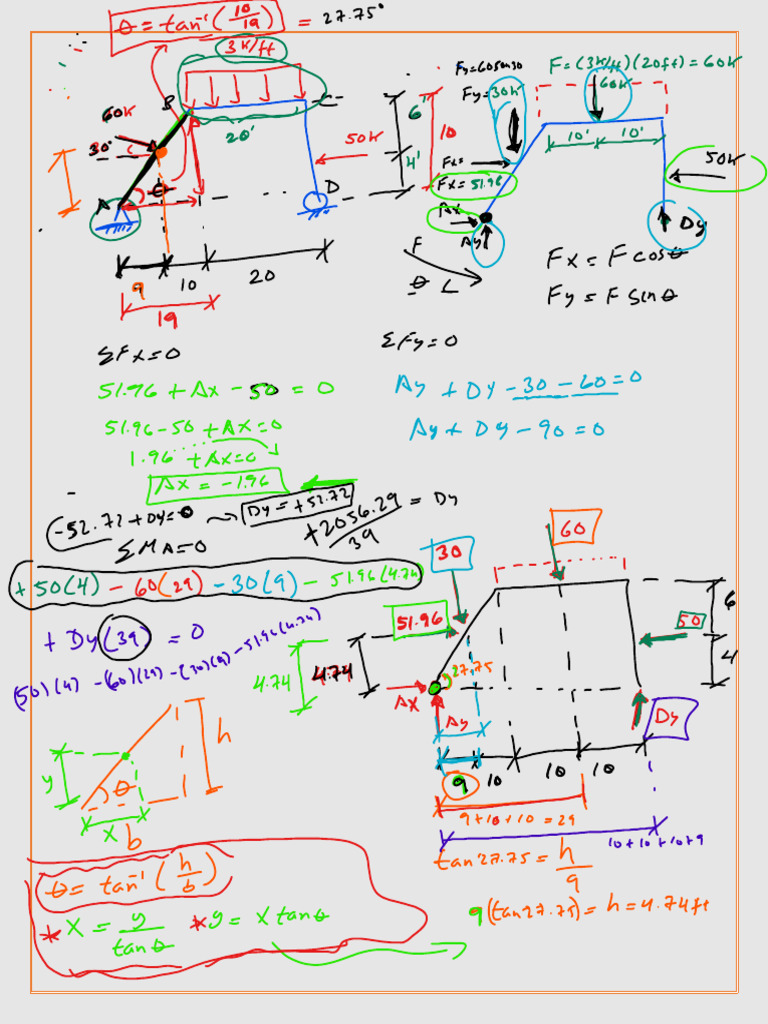 θ = tan⁻¹ (10/19) = 27.75°
3K/ft
B
C
60K
30°
20'
50K
A
θ
D
6'
4'
9
10
20
19
Fy=60sin30
Fy=30K
F=(3K/ft)(20ft)=60K
60K
10
10'
10'
50K
Fx=
Fx=51.96
Ax
Ay
Dy
F
θ L
Fx = F cosθ
Fy = F sinθ
ΣFx=0
ΣFy=0
51.96 + Ax - 50 = 0
51.96-50 +Ax=0
1.96 +Ax=0
Ax = -1.96
Ay + Dy -30 -60=0
Ay+ Dy -90=0
-52.72+Dy=0
Dy=+52.72
+2056.29/39 = Dy
ΣMA=0
+50(4) - 60(29) -30(9) - 51.96(4.74)
+ Dy(39) = 0
(50)(4) -(60)(29) -(30)(9) -51.96(4.74)
60
30
51.96
50
6
4
4.74
4.74
27.75
Ax
Ay
Dy
9
10
10
10
9+10+10=29
10+10+10+9
h
y
θ
x
b
tan27.75 = h/9
9(tan27.75)= h=4.74ft
θ = tan⁻¹ (h/b)
* x = y/tanθ * y = x tanθ